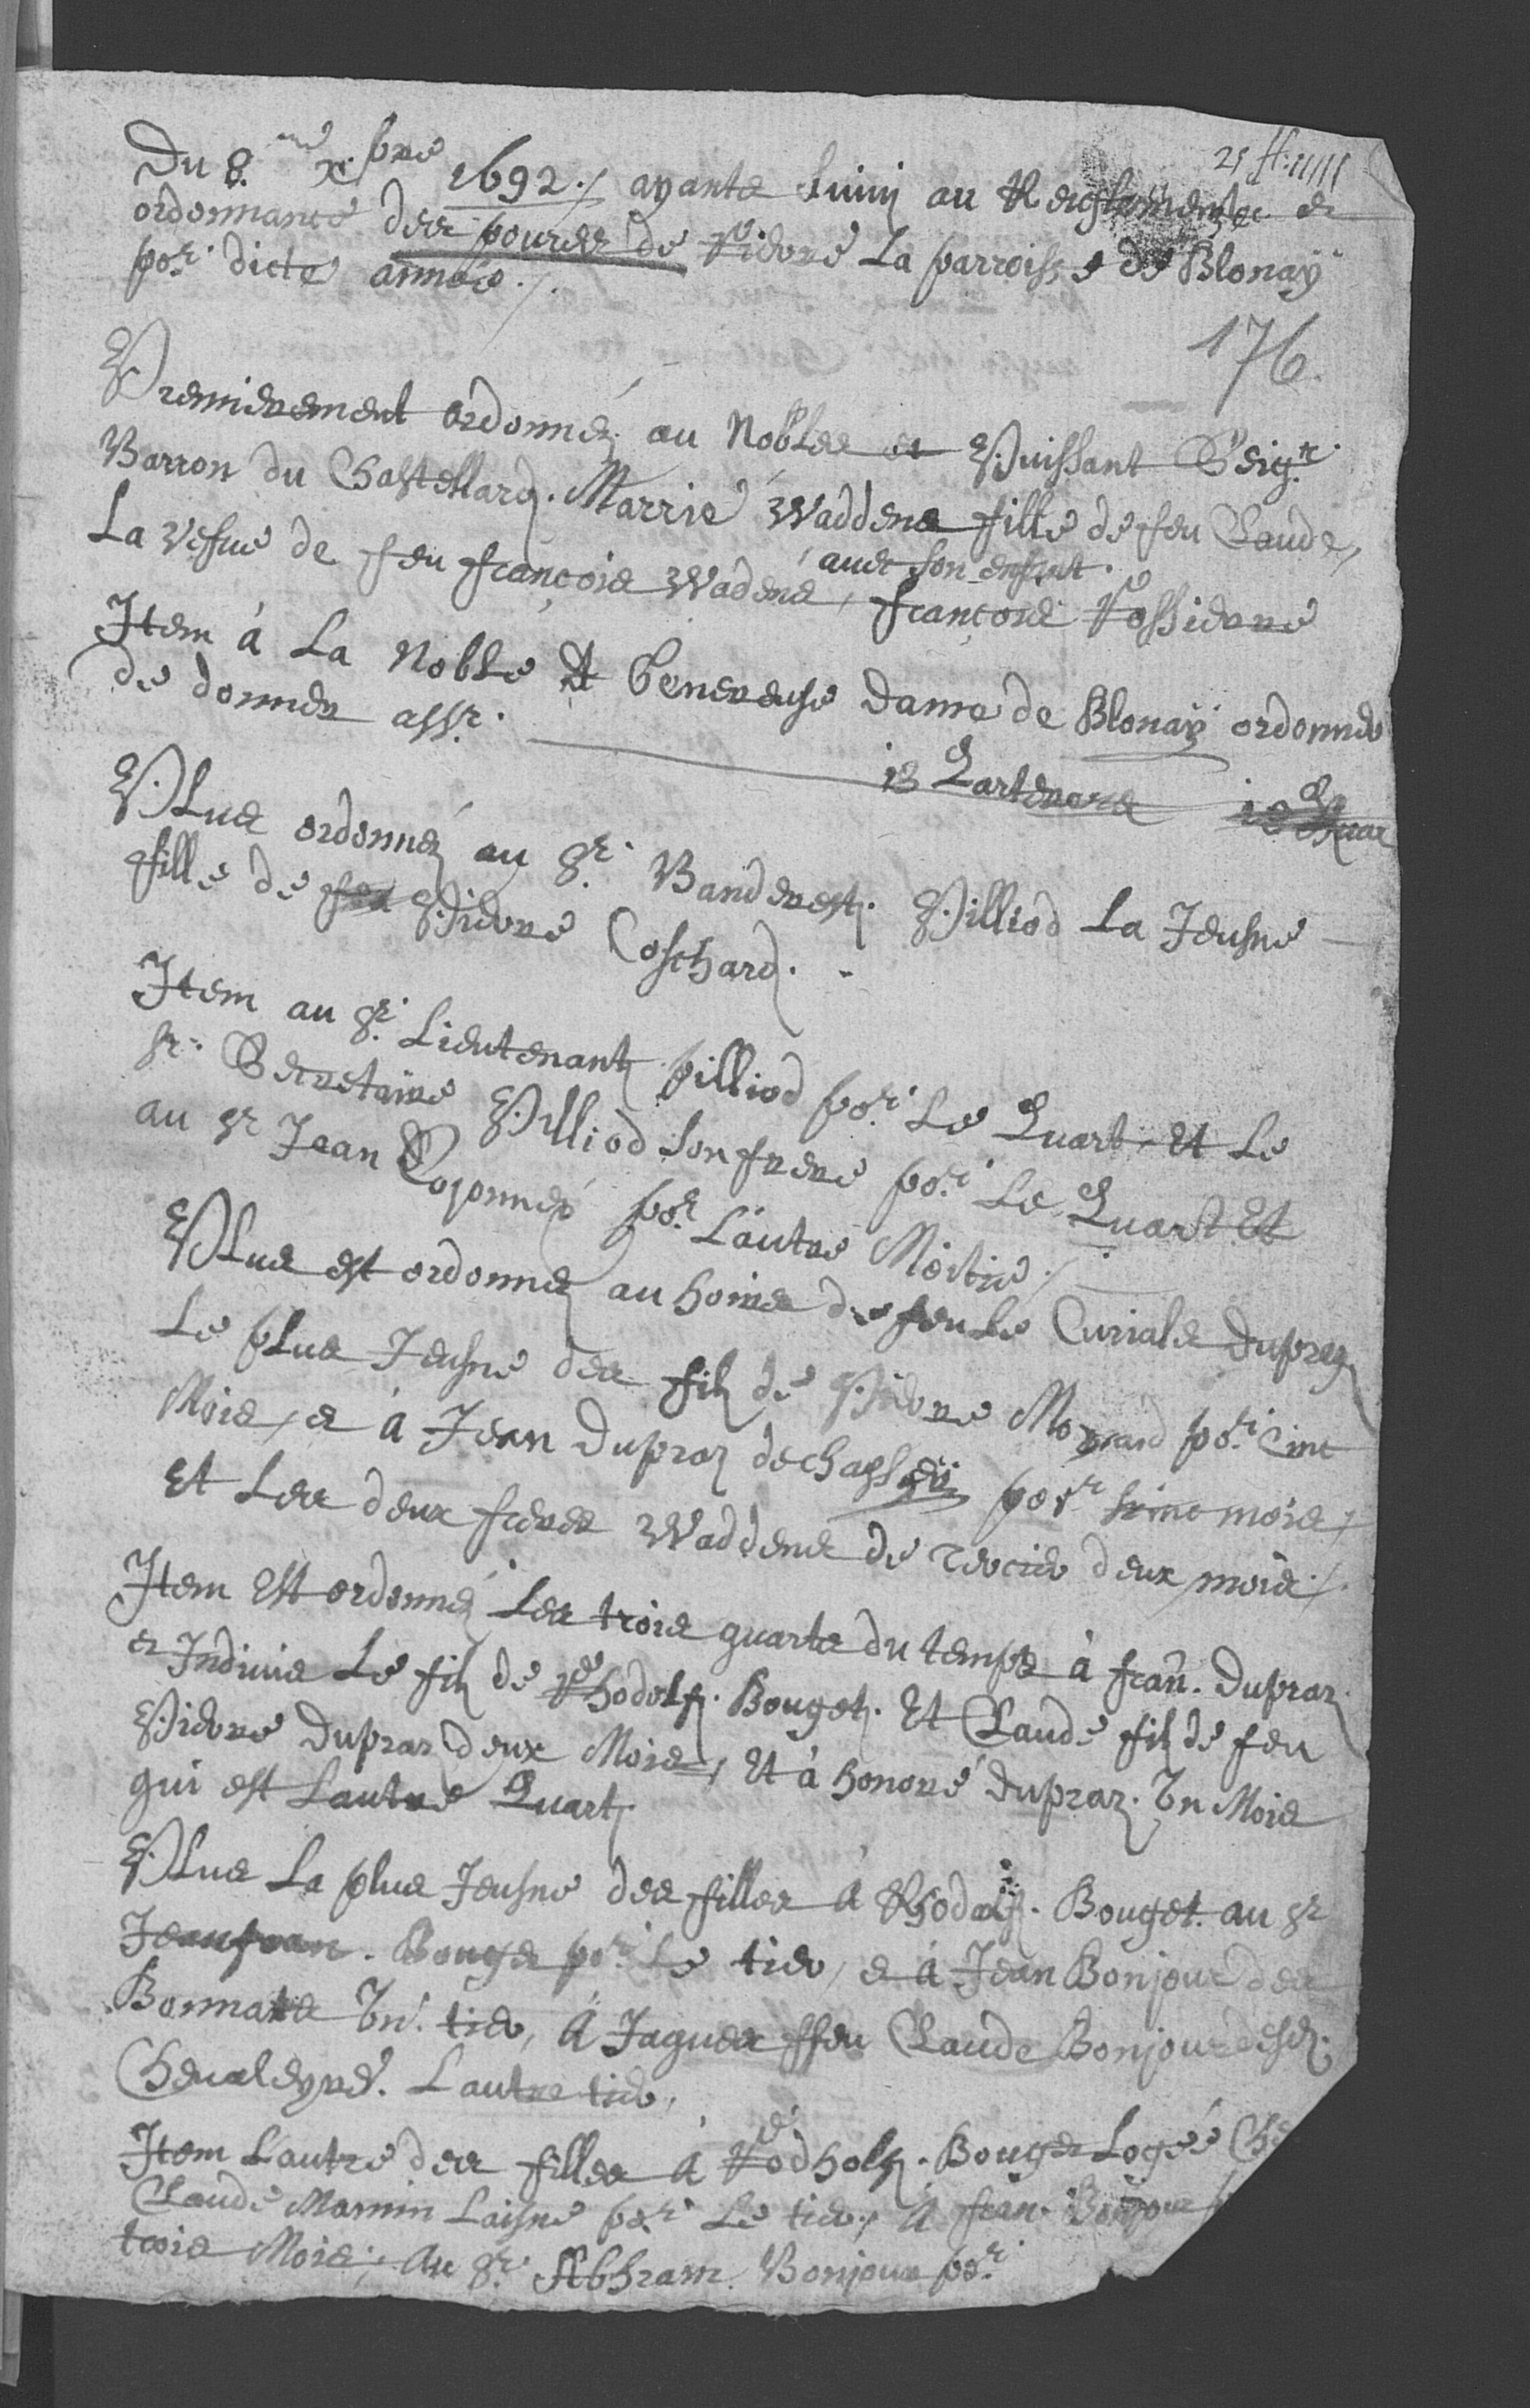 Du 8.me xbre 1692./ ayants suivy au Reiglements et
ordonnance des pouvres de Riere La parroisse de Blonaÿ
por. dicte année./.
176.
Premierement ordonné au Nobles et Puissant Seigr.
Barron du Chastellard. Marrie Waddens fille de feu Claude,
avec son enfant.
La vefue de feu françois Wadens, françoise Rossiere
Item à La Noble Et Genereuse Dame de Blonaÿ ordonné
de donner assr.
13 Qarterons
Plus ordonné au Sr. Banderet. Pilliod La Jeusne
fille de feu Pierre Coschard.
Item au Sr. Lieutenant pilliod por. Le Quart, Et Le
Sr. Secretaire Pilliod son frere por. Le Quart Et
au Sr Jean por. L'autre Moitié./
Plus est ordonné au hoirs de feu Le Curiale Dupraz
Le plus Jeusne des filz de Pierre Monard por. Cinc
Mois, et à Jean Dupraz de por. sinc mois,
Et Les deux freres Waddens de deux mois./.
Item Est ordonné Les trois quarts du temps à fran. Dupraz.
et Indivis Le filz de Rhodolf. Bouget. Et Claude filz de feu
Pierre Dupraz deux Mois, Et à honoré Dupraz. Un Mois
qui est Lautre Quart.
Plus La plus Jeusne des filles à Rhodolf. Bouget. au Sr
Jeanfran. Bouge por. Le tier, et à Jean Bonjour des
Bonnats Un. tier, à Jaques ffeu Claude Bonjour
Chevaleyres. L'autre tier,
Item L'autre des filles à Rodholf. Bouget Logée
Claude Mamin Laisne por. Le tier, à fran. Bonjour
trois Mois, Au Sr. Abhram. Bonjour por.